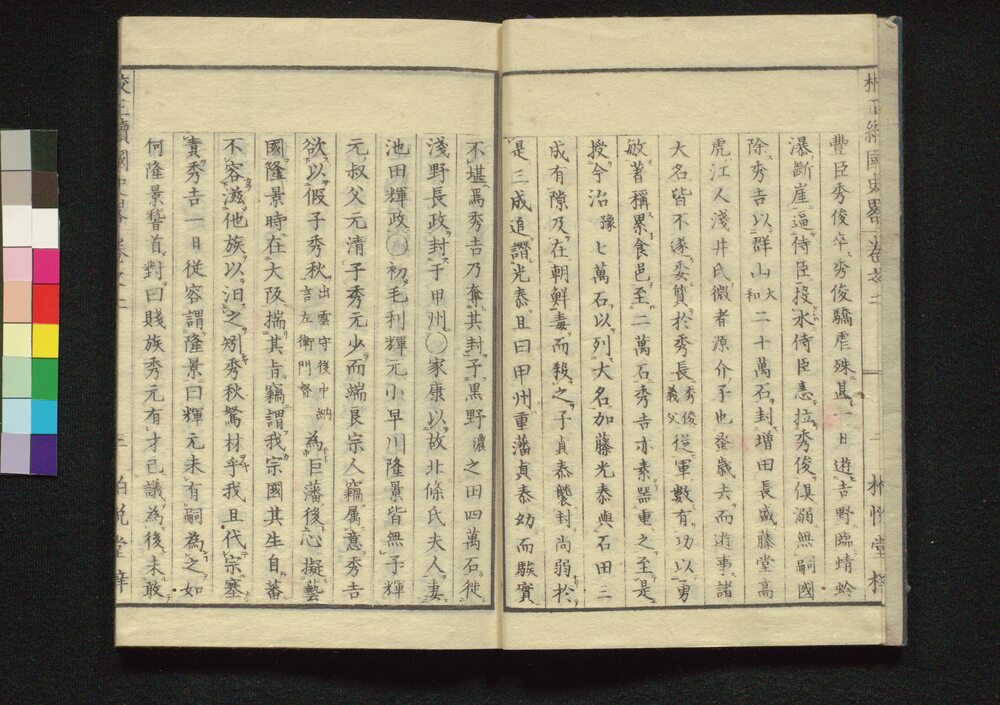 豐臣秀俊卒秀俊驕虐殊甚一日遊吉野臨蜻蛉
瀑斷崖逼侍臣投水侍臣恚拉秀俊俱溺無嗣國
除秀吉以群山大和二十萬石封增田長盛藤堂高
虎江人淺井氏微者源介子也蚤歲去而遊事諸
大名皆不遂委質於秀長秀俊義父從軍數有功以勇
敏著稱累食邑至二萬石秀吉亦素器重之至是
授今治豫七萬石以列大名加藤光泰與石田三
成有隙及在朝鮮毒而殺之子貞泰襲封尚弱於
是三成追譖光泰且曰甲州重藩貞泰幼而騃實
不堪焉秀吉乃奪其封予黑野濃之田四萬石徙
淺野長政封于甲州○家康以故北條氏夫人妻
池田輝政○初毛利輝元小早川隆景皆無子輝
元叔父元清子秀元少而端良宗人竊属意秀吉
欲以假子秀秋出雲守後中納言左衛門督為巨藩後心擬藝
國隆景時在大阪揣其旨竊謂我宗國其生自蕃
不容滋他族以汨之矧秀秋駑材乎我且代宗塞
責秀吉一日從容謂隆景曰輝元未有嗣為之如
何隆景稽首對曰賤族秀元有才已議為後未敢